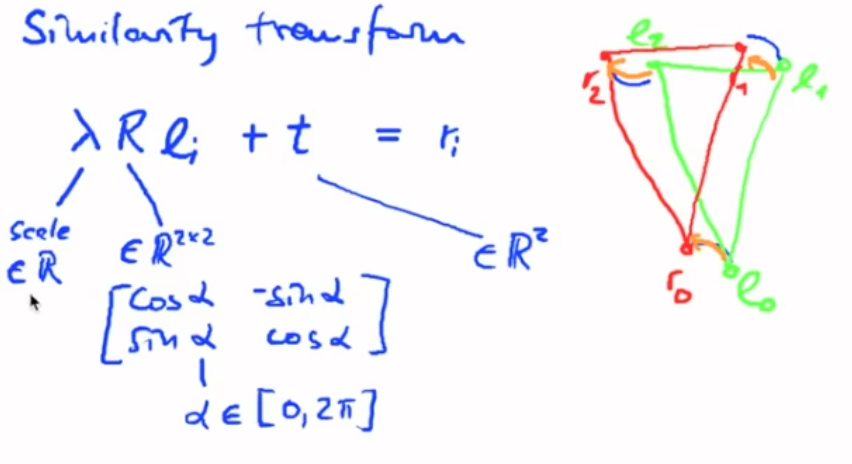 Similarity transform
λ R l_i + t = r_i
scale
∈ ℝ
∈ ℝ^{2×2}
∈ ℝ^2
[cos α -sin α
sin α cos α]
α ∈ [0, 2π]
l_2
l_1
r_2
r_1
r_0
l_0